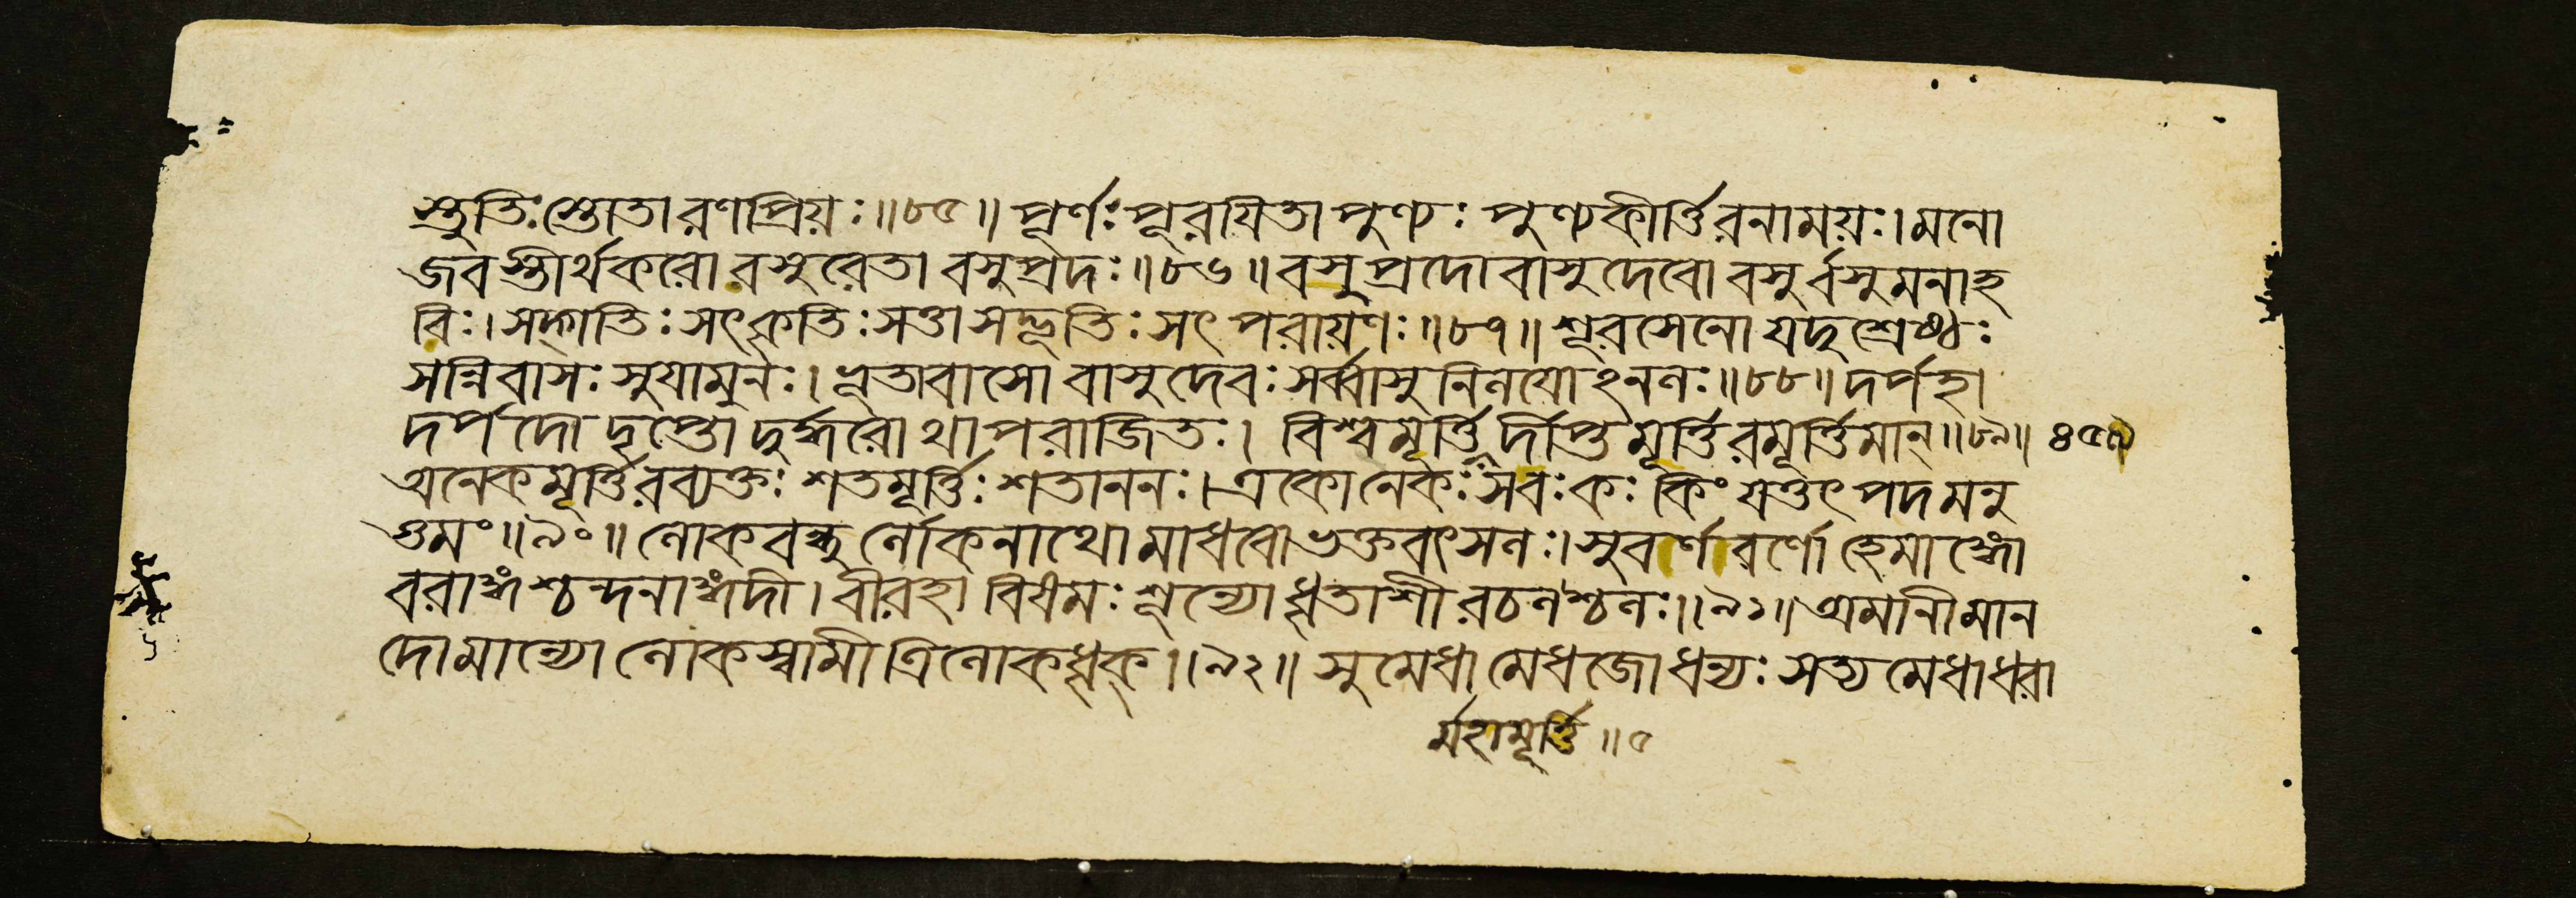 স্তুতিঃ স্তোতা রণপ্রিয়ঃ॥৮৫॥ পূর্ণঃ পূরয়িতা পুণ্যঃ পুণ্যকীর্ত্তিরনাময়ঃ। মনো
জবস্তীর্থকরো বসুরেতা বসুপ্রদঃ॥৮৬॥ বসুপ্রদো বাসুদেবো বসুর্বসুমনাহ
বিঃ। সদ্গতিঃ সৎকৃতিঃ সত্তা সদ্ভূতিঃ সৎপরায়ণঃ॥৮৭॥ শূরসেনো যদুশ্রেষ্ঠঃ
সন্নিবাসঃ সুযামুনঃ। ভূতাবাসো বাসুদেবঃ সর্ব্বাসুনিলয়োঽনলঃ॥৮৮॥ দর্পহা
দর্পদো দৃপ্তো দুর্দ্ধরোথাপরাজিতঃ। বিশ্বমূর্ত্তির্দীপ্তমূর্ত্তিরমূর্ত্তিমান্॥৮৯॥
অনেকমূর্ত্তিরব্যক্তঃ শতমূর্ত্তিঃ শতাননঃ। একোনেকঃ সবঃ কঃ কিং যত্তৎপদমনু
ত্তমং॥৯০॥ লোকবন্ধুর্লোকনাথো মাধবো ভক্তবৎসলঃ। সুবর্ণবর্ণো হেমাঙ্গো
বরাঙ্গশ্চন্দনাঙ্গদী। বীরহা বিষমঃ শূন্যো ঘৃতাশীরচলশ্চলঃ॥৯১॥ অমানী মান
দো মান্যো লোকস্বামী ত্রিলোকধৃক্॥৯২॥ সুমেধা মেধজো ধন্যঃ সত্যমেধা ধরা
র্মহামূর্ত্তি॥৫